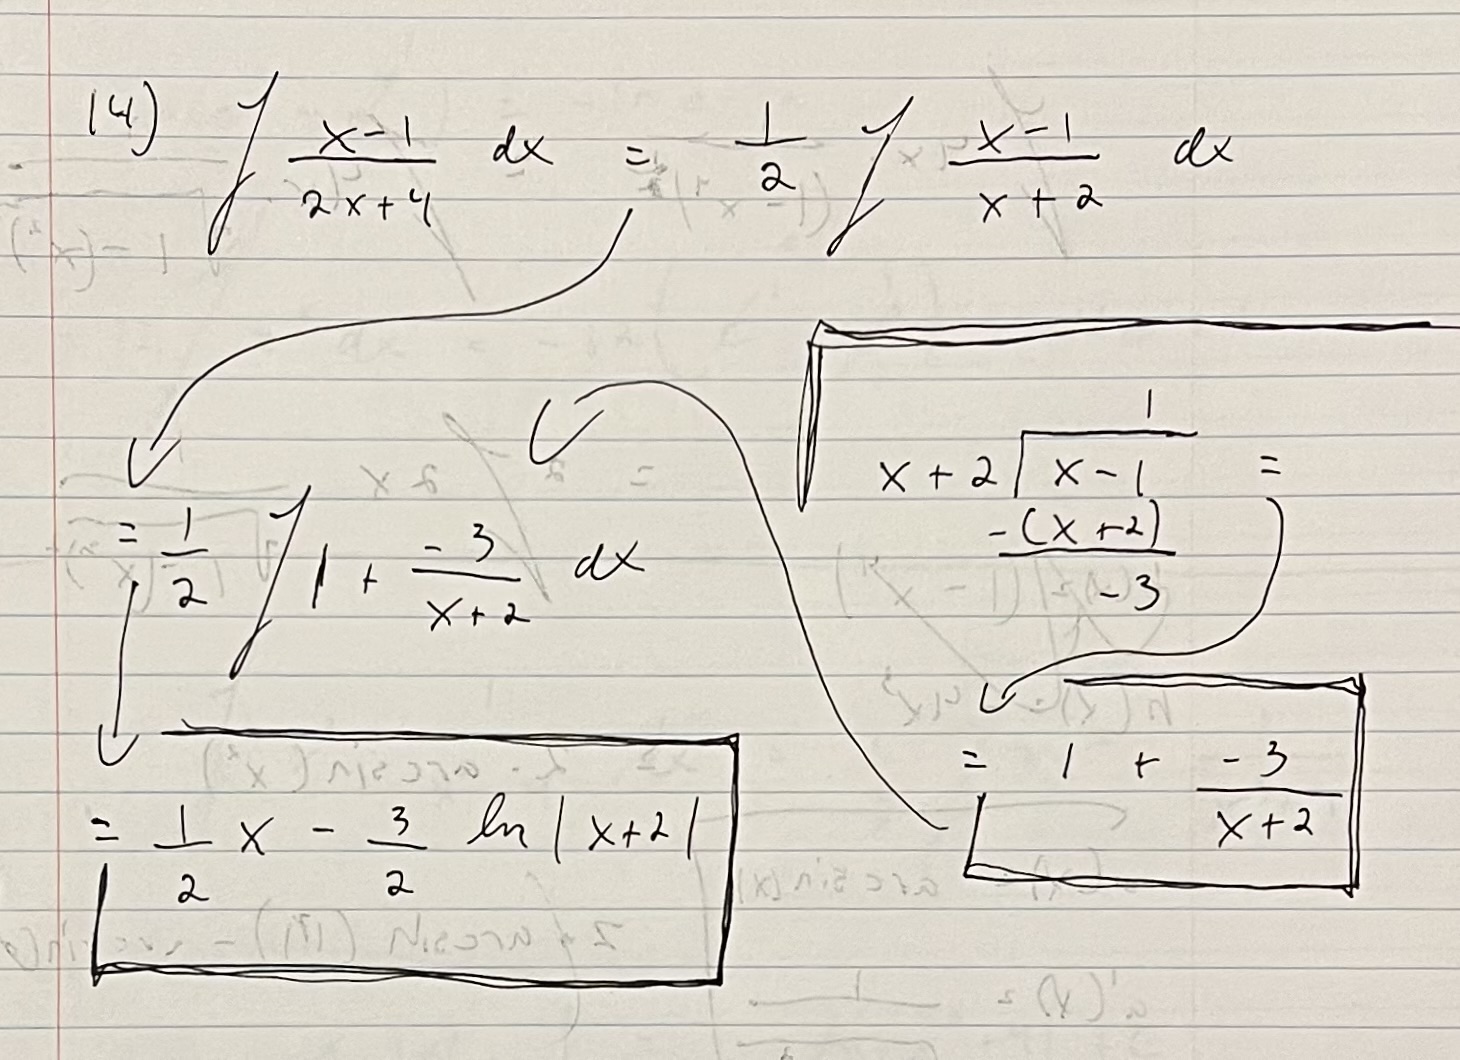 14) ∫ (x-1)/(2x+4) dx = 1/2 ∫ (x-1)/(x+2) dx
1
x+2 ⟌ x-1 =
-(x+2)
-3
= 1 + -3/(x+2)
= 1/2 ∫ 1 + -3/(x+2) dx
= 1/2 x - 3/2 ln|x+2|